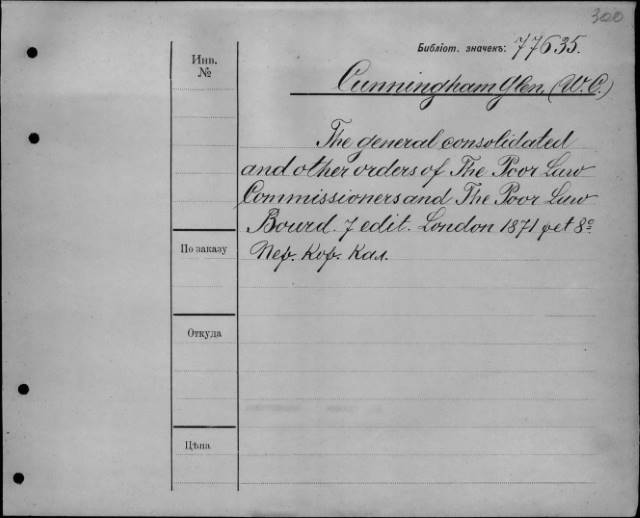 300
Библіот. значекъ: 77635.
Инв.
№
Cunningham Glen, (W. C.)
The general consolidated
and other orders of The Poor Law
Commissioners and The Poor Law
Bourd. 7 edit. London 1871 pet 8º
По заказу
Пер. Кор. Кал.
Откуда
Цѣна